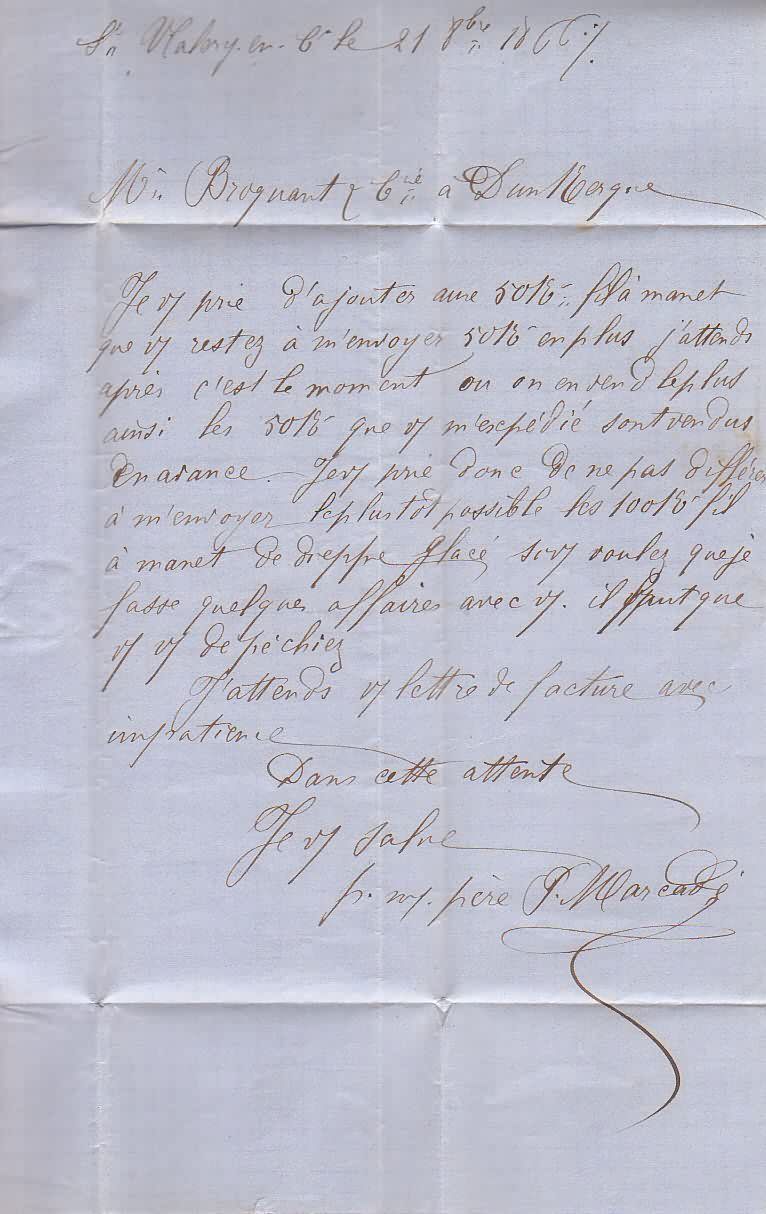 St Valery en C. le 21 8bre 1867
Mrs Broquant & Cie à DunKerque
Je vs prie d'ajouter aux 50 Ko fil à manet
que vs restez à m'envoyer 50 Ko en plus j'attends
après c'est le moment ou on en vend le plus
ainsi les 50 Ko que vs m'expédié sont vendus
d'navance. Je vs prie donc de ne pas différer
à m'envoyer le plus tôt possible les 100 Ko fil
à manet de dieppe glacé si vs voulez que je
fasse quelques affaires avec vs. il faut que
vs vs depéchiez
J'attends vs lettre de facture avec
impatience
Dans cette attente
Je vs salue
pr. mn. père P. Marcadé